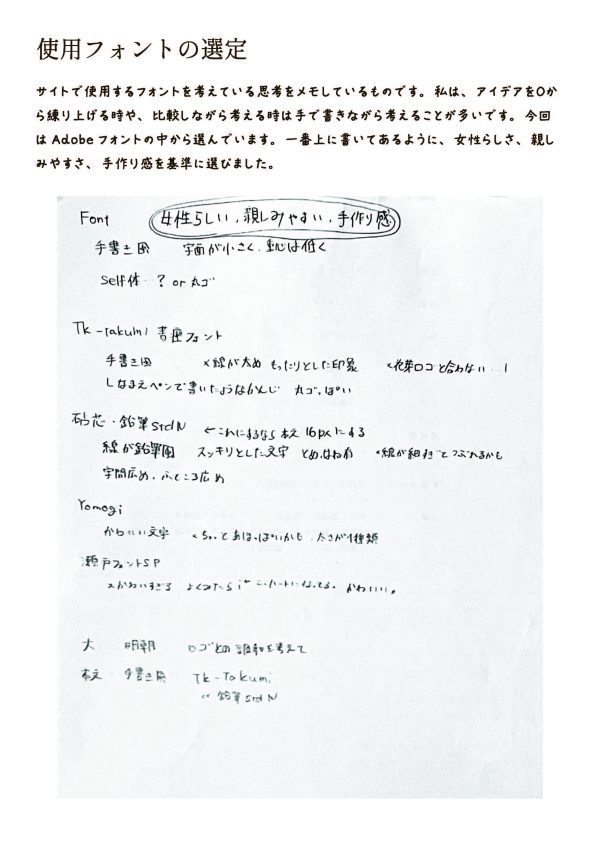 使用フォントの選定
サイトで使用するフォントを考えている思考をメモしているものです。私は、アイデアを0か
ら練り上げる時や、比較しながら考える時は手で書きながら考えることが多いです。今回
は Adobe フォントの中から選んでいます。一番上に書いてあるように、女性らしさ、親し
みやすさ、手作り感を基準に選びました。
Font 女性らしい、親しみやすい、手作り感
手書き風 字面が小さく、重心は低く
Self体…? or 丸ゴ
Tk-takumi 書痙フォント
手書き風 ×線が太め もったりとした印象 ×花芽ロゴと合わない…!
しなまえペンで書いたようなかんじ 丸ゴっぽい
砧芯・鉛筆StdN ←これにするなら本文16pxにする
線が鉛筆風 スッキリとした文字 とめはね有 ×線が細すぎとつぶれるかも
字間広め、ふところ広め
Yomogi
かわいい文字 ×ちょっとあほっぽいかも 太さが1種類
瀬戸フォントSP
×かわいすぎる よくみたら i ← ここハートになってる。かわいい。
大 明朝 ロゴとの調和を考えて
本文 手書き風 Tk-Takumi
or 鉛筆StdN